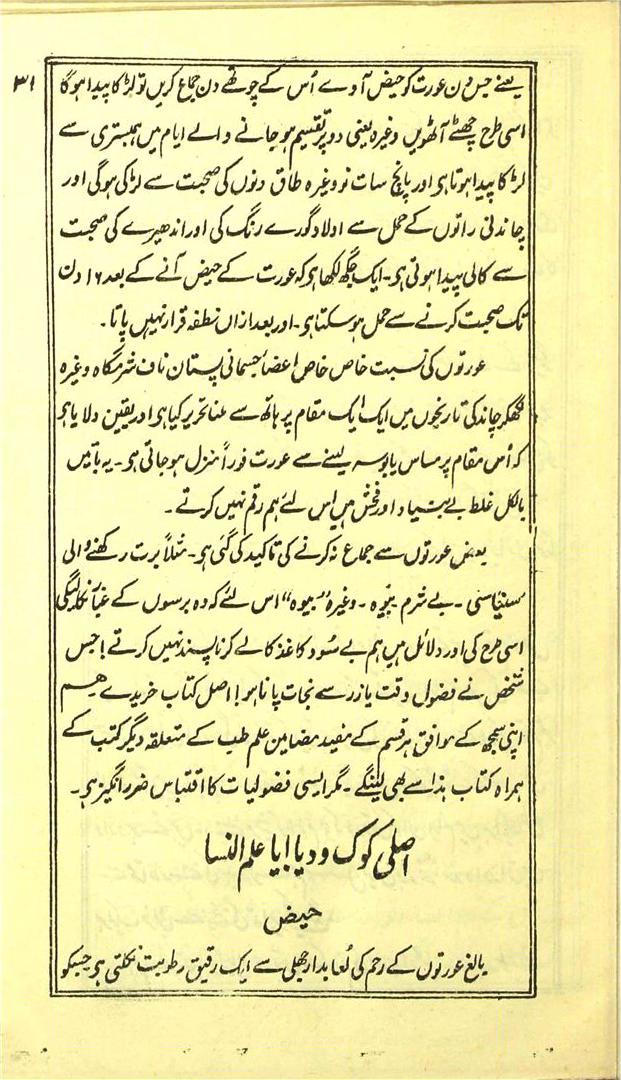 ۳۱
یعنے جس دن عورت کو حیض آوے اُس کے چوتھے دن جماع کریں تو لڑکا پیدا ہوگا
اسی طرح چھٹے آٹھویں وغیرہ یعنی دو پر تقسیم ہو جانے والے ایام میں ہمبستری سے
لڑکا پیدا ہوتا ہی اور پانچ سات نو وغیرہ طاق دنوں کی صحبت سے لڑکی ہوگی اور
چاندنی راتوں کے حمل سے اولاد گورے رنگ کی اور اندھیرے کی صحبت
سے کالی پیدا ہوتی ہی۔ ایک جگھ لکھا ہی کہ عورت کے حیض آنے کے بعد ۱۶ دن
تک صحبت کرنے سے حمل ہو سکتا ہی۔ اور بعد ازاں نطفہ قرار نہیں پاتا۔
عورتوں کی نسبت خاص خاص اعضاً جسمانی پستان ناف شرمگاہ وغیرہ
لکھکر چاند کی تاریخوں میں ایک ایک مقام پر ہاتھ سے ملنا تحریر کیا ہی اور یقین دلایا ہی
کہ اُس مقام پر مساس یا بوسہ لینے سے عورت فوراً منزل ہو جاتی ہی۔ یہ باتیں
بالکل غلط بے بنیاد اور فحش ہیں اس لئے ہم رقم نہیں کرتے۔
بعض عورتوں سے جماع نہ کرنے کی تاکید کی گئی ہی۔ مثلاً برت رکھنے والی
سنیاسنی۔ بے شرم۔ بیوہ۔ وغیرہ "بیوہ" اس لئے کہ وہ برسوں کے غبار نکالیگی
اسی طرح کی اور دلائل ہیں ہم بے سُود کاغذ کالے کرنا پسند نہیں کرتے! جس
شخص نے فضول وقت یا زر سے نجات پانا ہو! اصل کتاب خریدے ہم
اپنی سمجھ کے موافق ہر قسم کے مفید مضامین علم طب کے متعلقہ دیگر کتب کے
ہمراہ کتاب ہذا سے بھی لینگے۔ مگر ایسی فضولیات کا اقتباس ضرر انگیز ہی۔
اصلی کوک ودیا یا علم النسا
حیض
بالغ عورتوں کے رحم کی لُعابدار جھلی سے ایک رقیق رطوبت نکلتی ہی جسکو